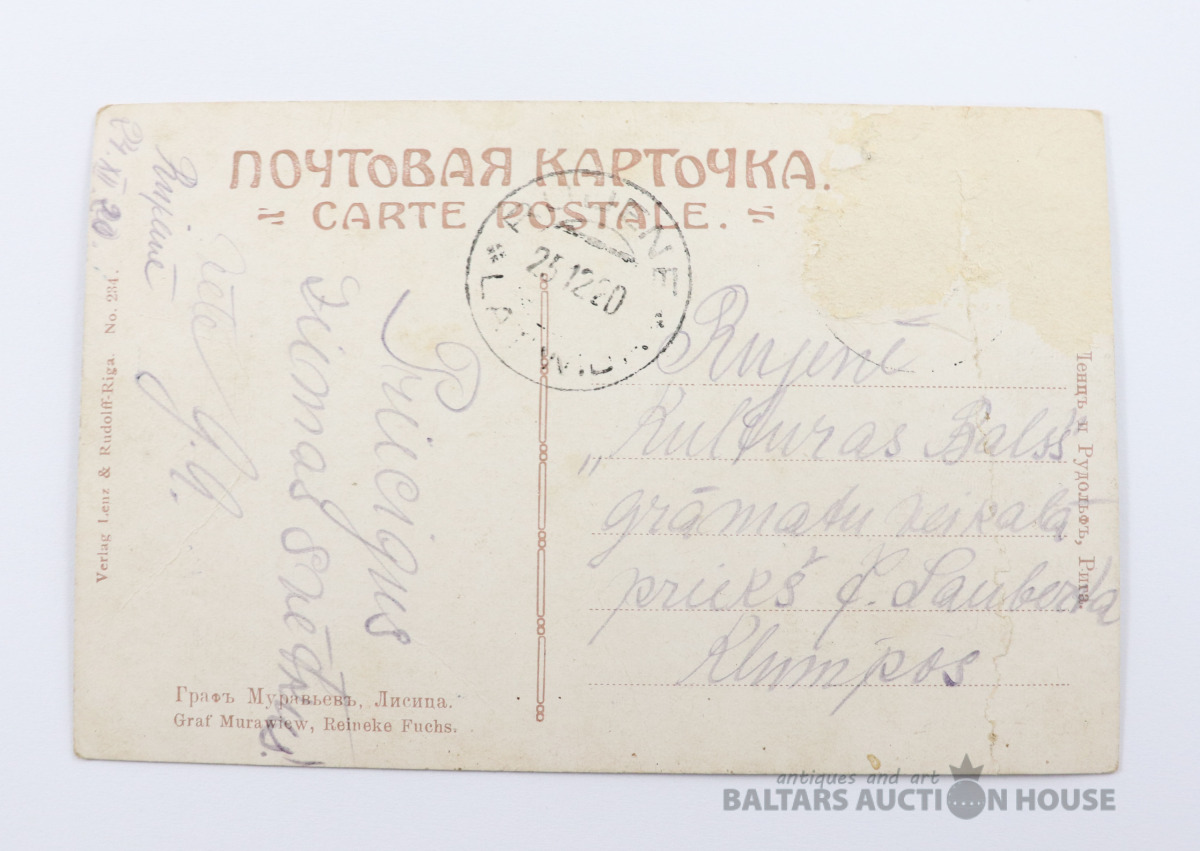 ПОЧТОВАЯ КАРТОЧКА.
CARTE POSTALE.
RUJIENE
25.12.20
LATVIJA
24.XII.20.
Rujienē
Priecigus
Ziemassvētkus!
Rujenē
„Kulturas Balss
grāmatu veikalā
priekš J. Sauberta
Klumpos
Verlag Lenz & Rudolff-Riga. No. 234.
Ленцъ и Рудольфъ, Рига.
Графъ Муравьевъ, Лисица.
Graf Murawiew, Reineke Fuchs.
antiques and art
BALTARS AUCTION HOUSE